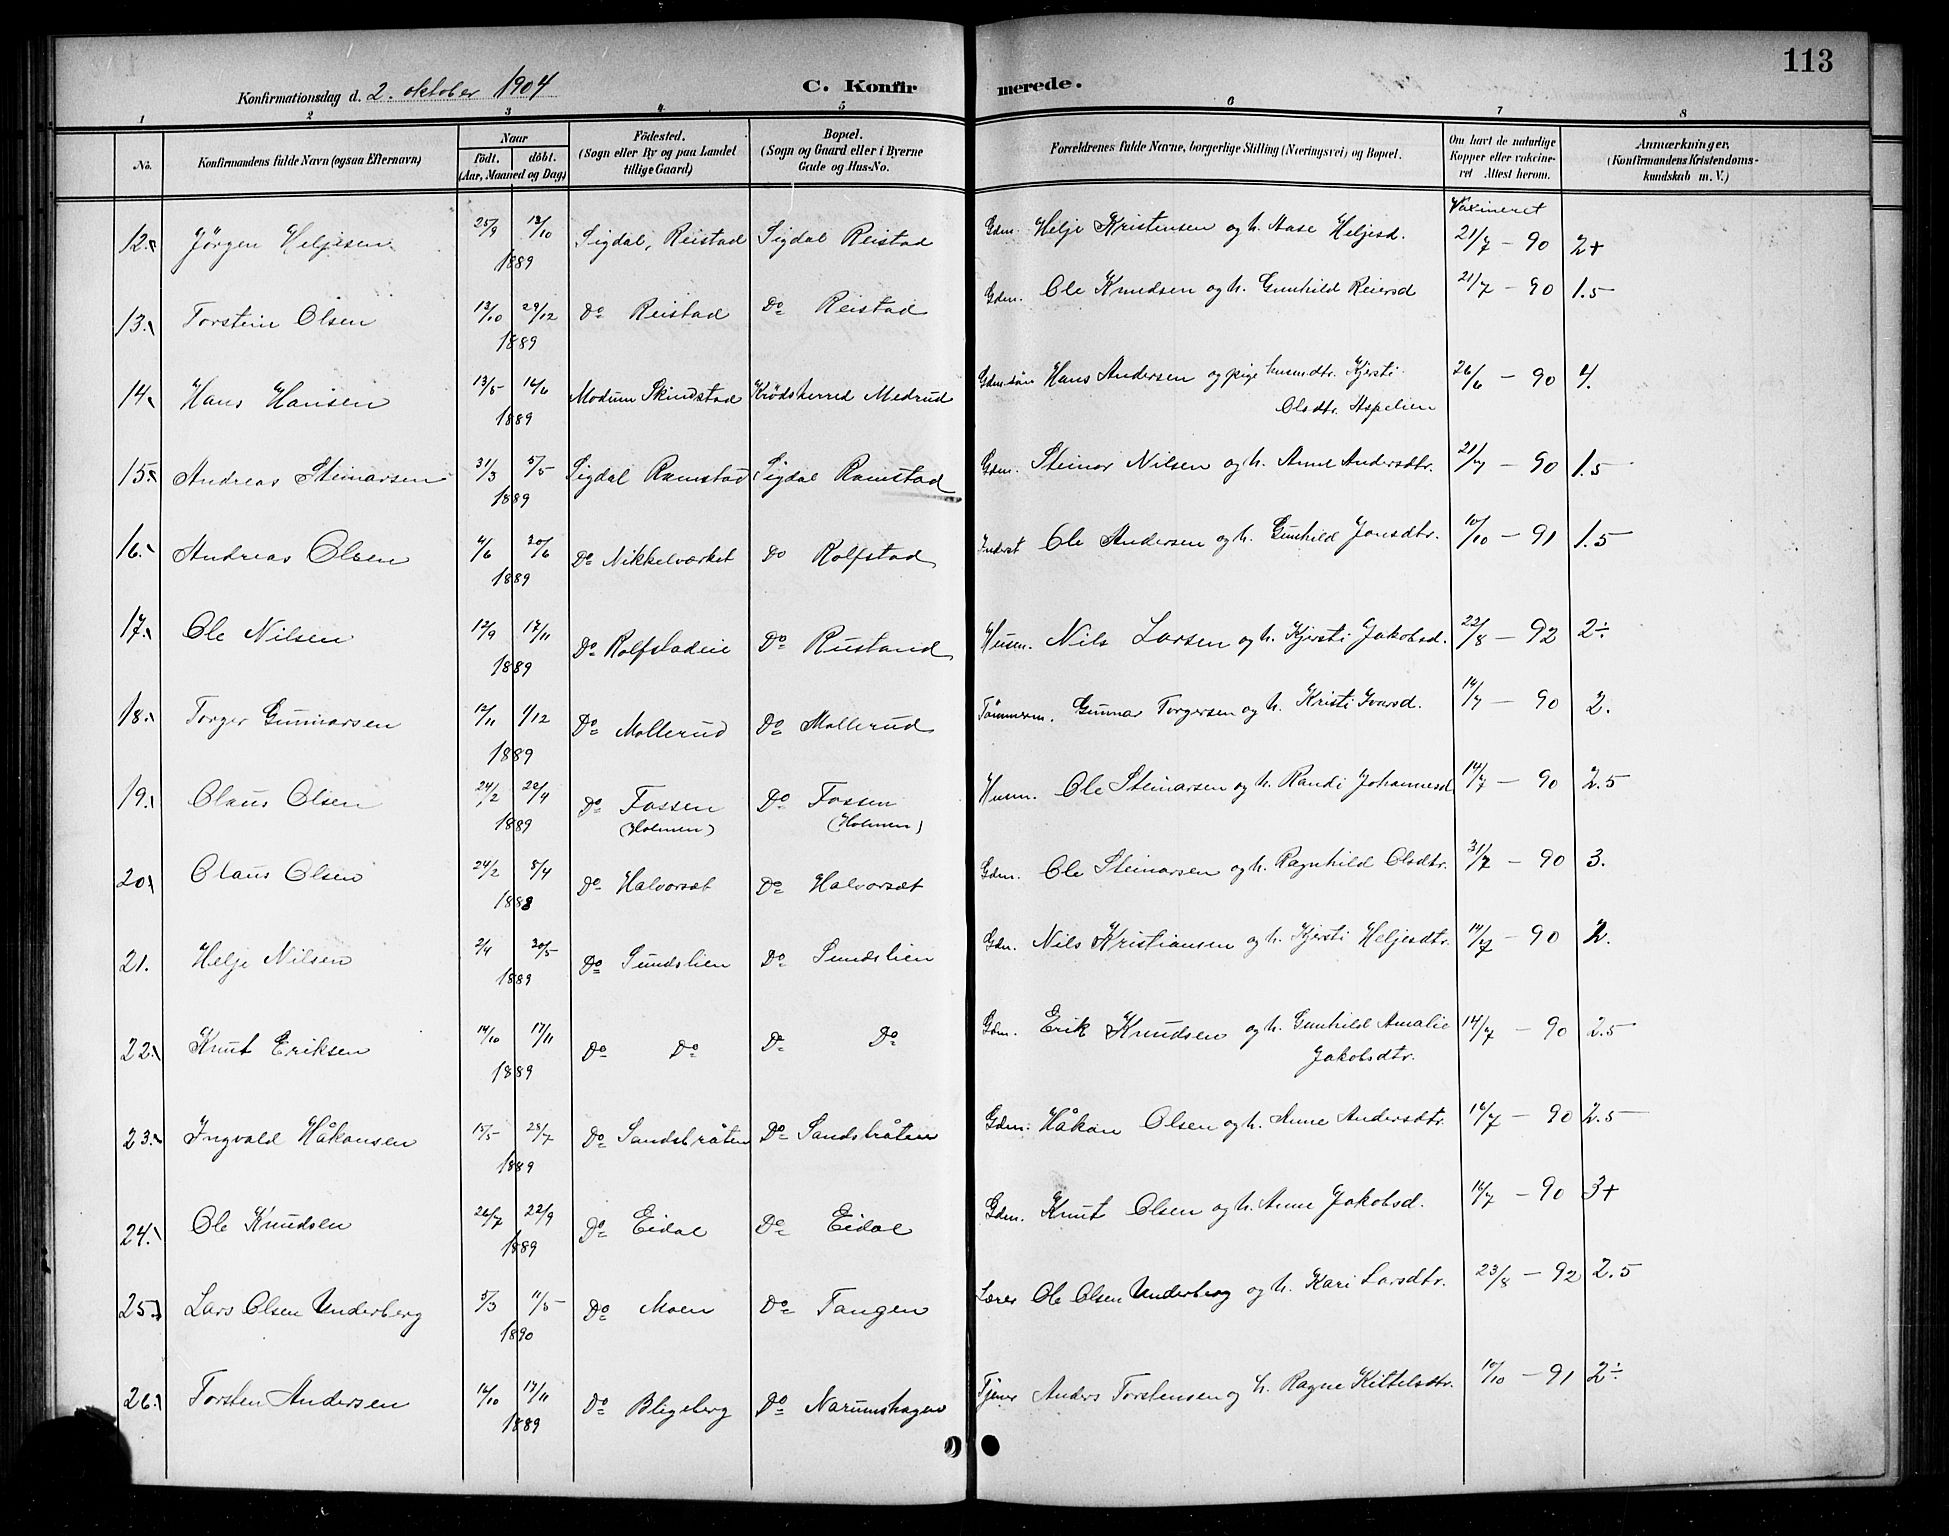 113
Konfirmationsdag d. 2. oktober 1904 C. Konfirmerede.
1 2 3 4 5 6 7 8
No. Konfirmandens fulde Navn (ogsaa Efternavn) Naar født. døbt. (Aar, Maaned og Dag) Födested. (Sogn eller By og paa Landet tillige Gaard) Bopæl. (Sogn og Gaard eller i Byerne Gade og Hus-No. Forældrenes fulde Navne, borgerlige Stilling (Næringsvei) og Bopæl. Om havt de naturlige Kopper eller vakcineret Attest herom. Anmærkninger, (Konfirmandens Kristendomskundskab m. V.)
Vaxineret
12. Jørgen Heljesen 25/9 13/10 1889 Sigdal, Reistad Sigdal Reistad Gdm. Helje Kristensen og h. Aase Heljesd. 21/7 - 90 2+
13. Torstein Olsen 13/10 29/12 1889 Do Reistad Do Reistad Gdm. Ole Knudsen og h. Gunhild Reiersd 21/7 - 90 1.5
14. Hans Hansen 13/5 16/6 1889 Modum Skindstad Krødsherred Medrud Gdmsøn Hans Andersen og pige husmdtr. Kjersti Olsdtr. Aspelien 26/6 - 90 4.
15. Andreas Steinarsen 31/3 5/5 1889 Sigdal Ramstad Sigdal Ramstad Gdm. Steinar Nilsen og h. Anne Andersdtr. 21/7 - 90 1.5
16. Andreas Olsen 4/6 30/6 1889 Do Nikkelværket Do Rolfstad Inderst Ole Andersen og h. Gunhild Jonsdtr. 10/10 - 91 1.5
17. Ole Nilsen 12/9 17/11 1889 Do Rolfstadeie Do Rustand Husm. Nils Larsen og h. Kjersti Jakobsd. 22/8 - 92 2÷
18. Torger Gunnarsen 12/11 1/12 1889 Do Mollerud Do Mollerud Tømmerm. Gunnar Torgersen og h. Kristi Ivarsd. 14/7 - 90 2.
19. Claus Olsen 24/2 22/4 1889 Do Fossen (Holmen) Do Fossen (Holmen) Husm. Ole Steinarsen og h. Randi Johannesd 14/7 - 90 2.5
20. Claus Olsen 24/2 8/4 1888 Do Halvorsæt Do Halvorsæt Gdm. Ole Steinarsen og h. Ragnhild Olsdtr. 31/7 - 90 3.
21. Helje Nilsen 2/4 30/5 1889 Do Sundslien Do Sundslien Gdm. Nils Kristiansen og h. Kjersti Heljesdtr. 14/7 - 90 2.
22. Knut Eriksen 14/10 17/11 1889 Do Do Do Do Gdm. Erik Knudsen og h. Gunhild Amalie Jakobsdtr. 14/7 - 90 2.5
23. Ingvald Håkansen 15/5 28/7 1889 Do Sandsbråten Do Sandsbråten Gdm. Håkan Olsen og h. Anne Andersdtr. 14/7 - 90 2.5
24. Ole Knudsen 26/7 22/9 1889 Do Eidal Do Eidal Gdm. Knut Olsen og h. Anne Jakobsd. 14/7 - 90 3+
25. Lars Olsen Underberg 5/3 11/5 1890 Do Moen Do Tangen Lærer Ole Olsen Underberg og h. Kari Larsdtr. 23/8 - 92 2.5
26. Torsten Andersen 16/10 17/11 1889 Do Bligeberg Do Narumshagen Tjener Anders Torstensen og h. Ragne Kittelsdtr. 10/10 - 91 2÷